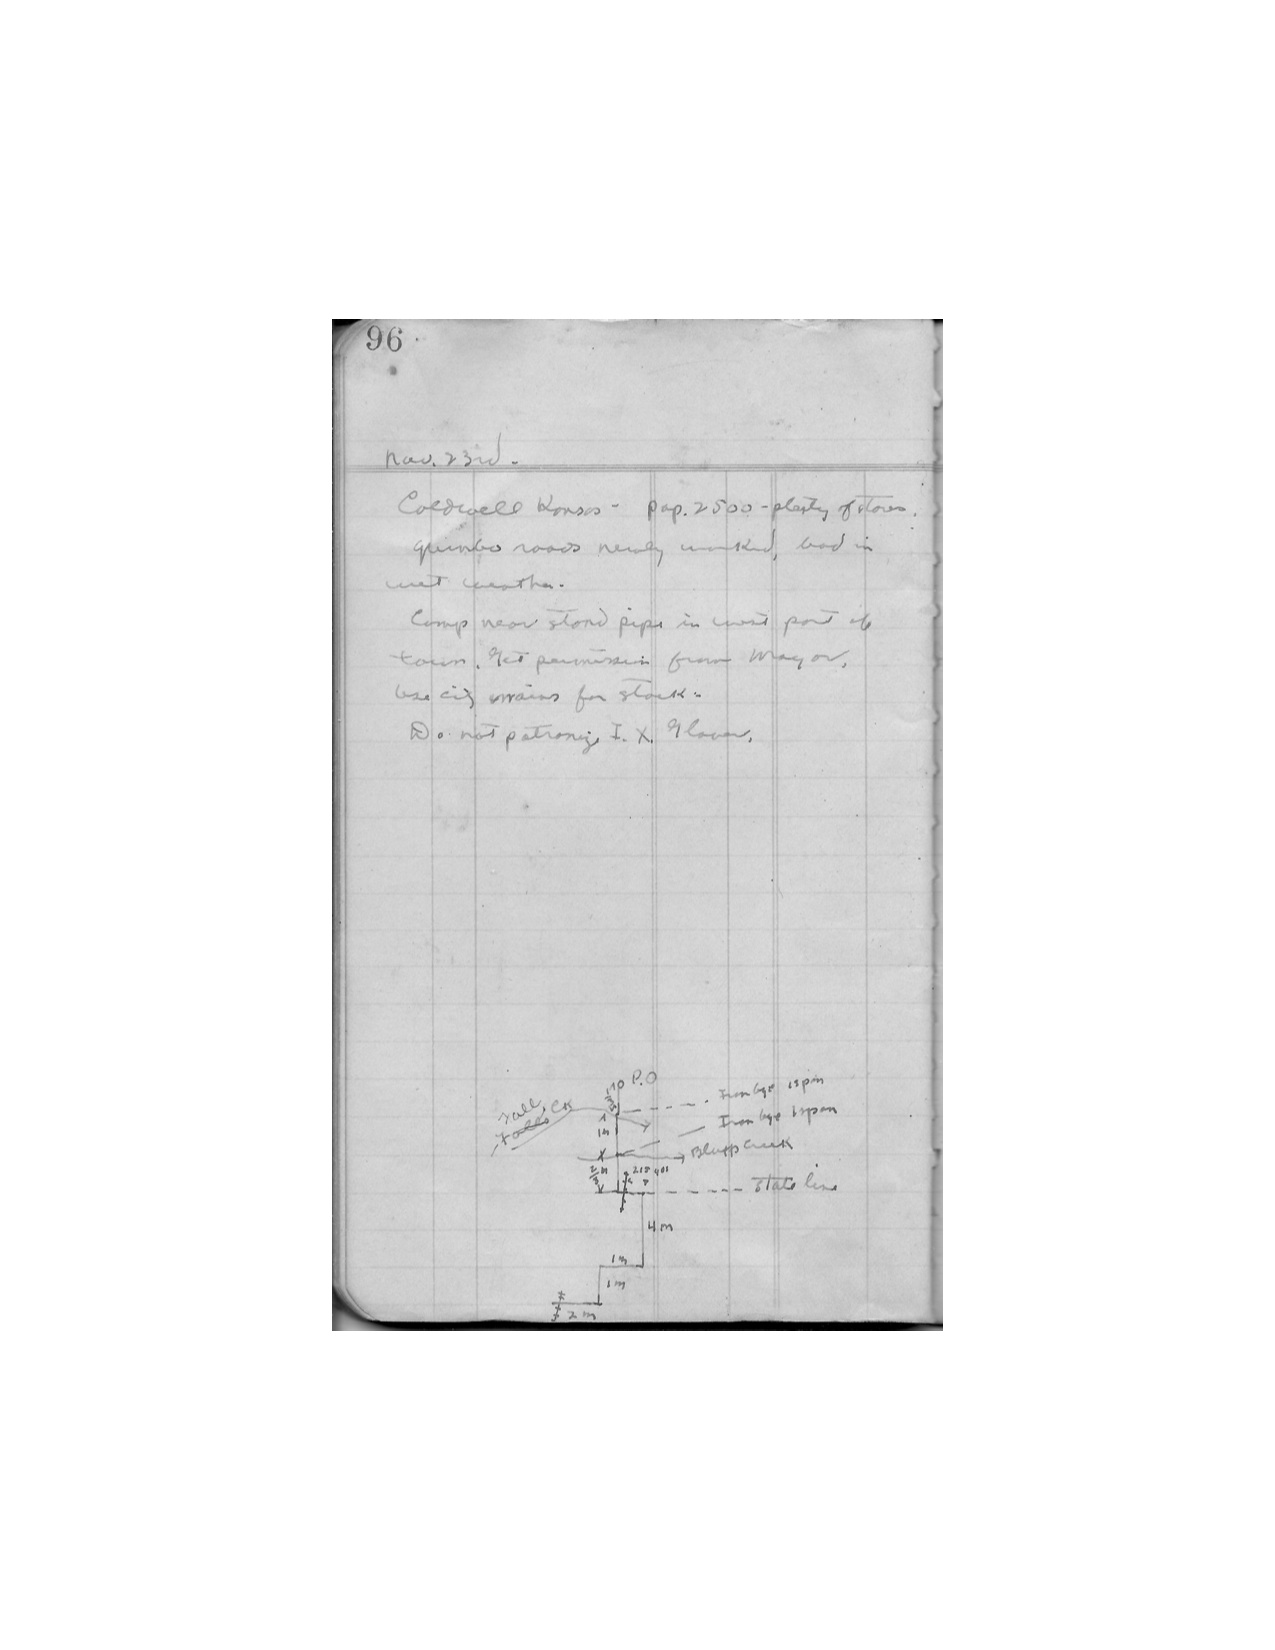 96
Nov. 23rd.
Caldwell Kansas - pop. 2500 - plenty of stores.
gumbo roads newly worked, bad in
wet weather.
Camp near stand pipe in west part of
town. Get permission from Mayor.
Use city mains for stock.
Do not patronize I. X. Glover.
P.O
Iron bge 1 span
Fall Ck
Falls
1 m
Iron bge 1 span
Bluff Creek
2/3 m
State line
4 m
1 m
1 m
2 m